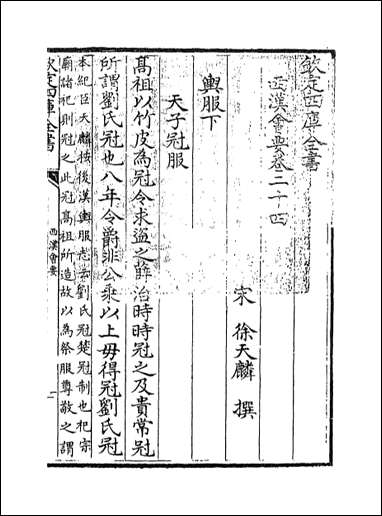 欽定四庫全書
西漢會要卷二十四
宋 徐天麟 撰
輿服下
天子冠服
髙祖以竹皮為冠令求盜之薛治時時冠之及貴常冠
所謂劉氏冠也八年令爵非公乘以上毋得冠劉氏冠
本紀臣天麟按後漢輿服志云劉氏冠楚冠制也祀宗
廟諸祀則冠之此冠髙祖所造故以為祭服尊敬之謂
欽定四庫全書
西漢會要
一